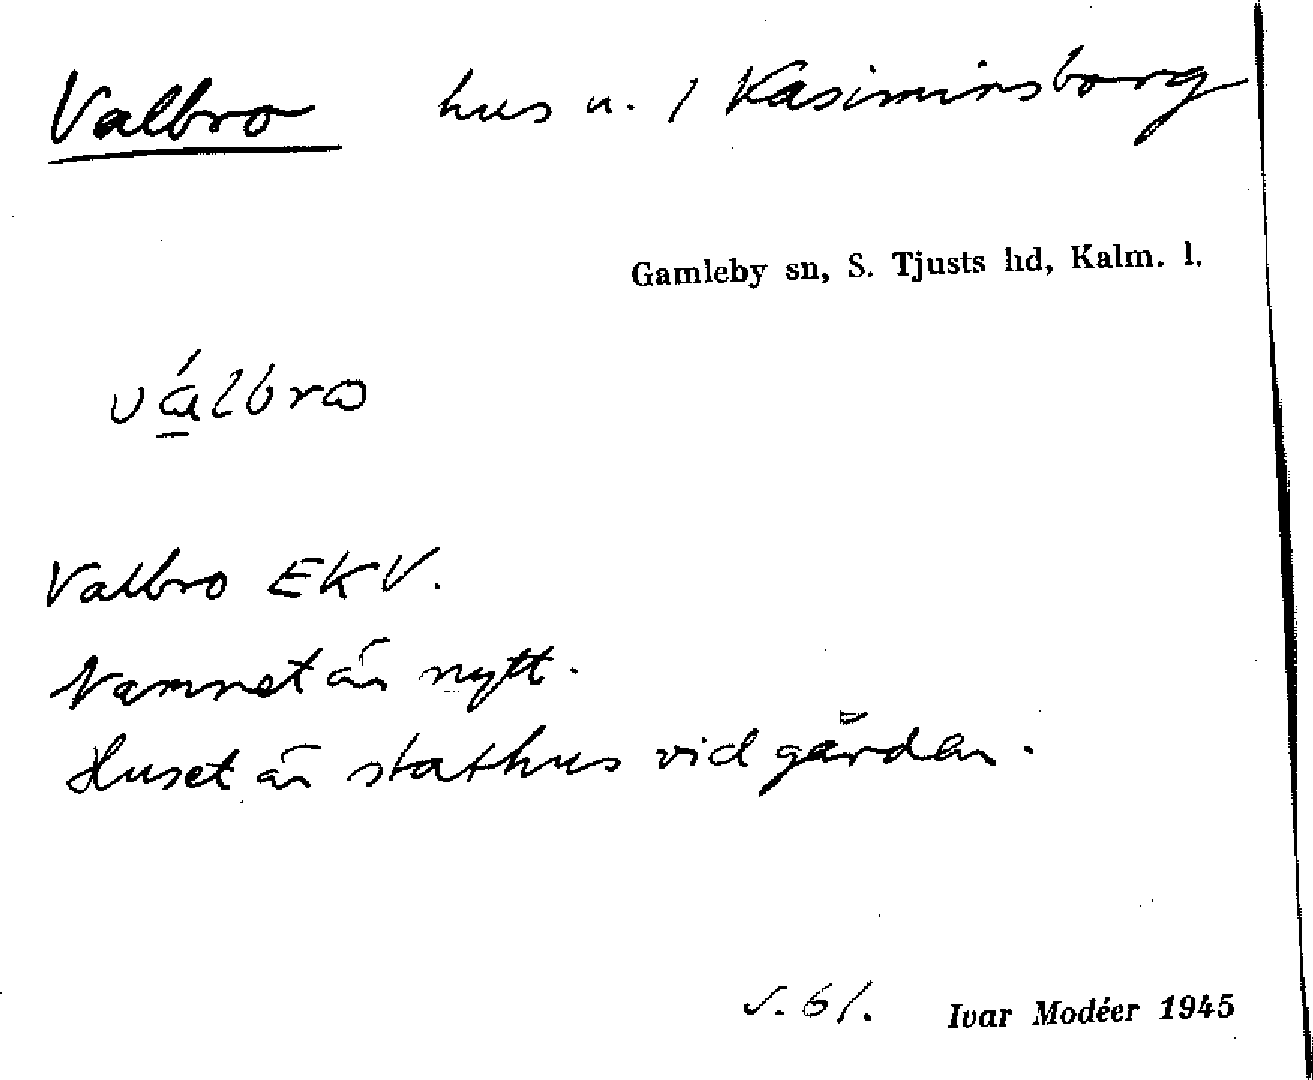 Valbro hus u. 1 Kasimirsborg
Gamleby sn, S. Tjusts hd, Kalm. l.
Valbro EKV.
Namnet är nytt.
Huset är stathus vid gården.
s. 61. Ivar Modéer 1945